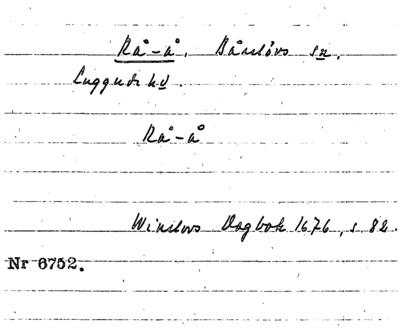 Rå-å, Bårslövs sn.
Luggude hd.
Rå-å
Winslovs Dagbok 1676, s. 82.
Nr 6752.